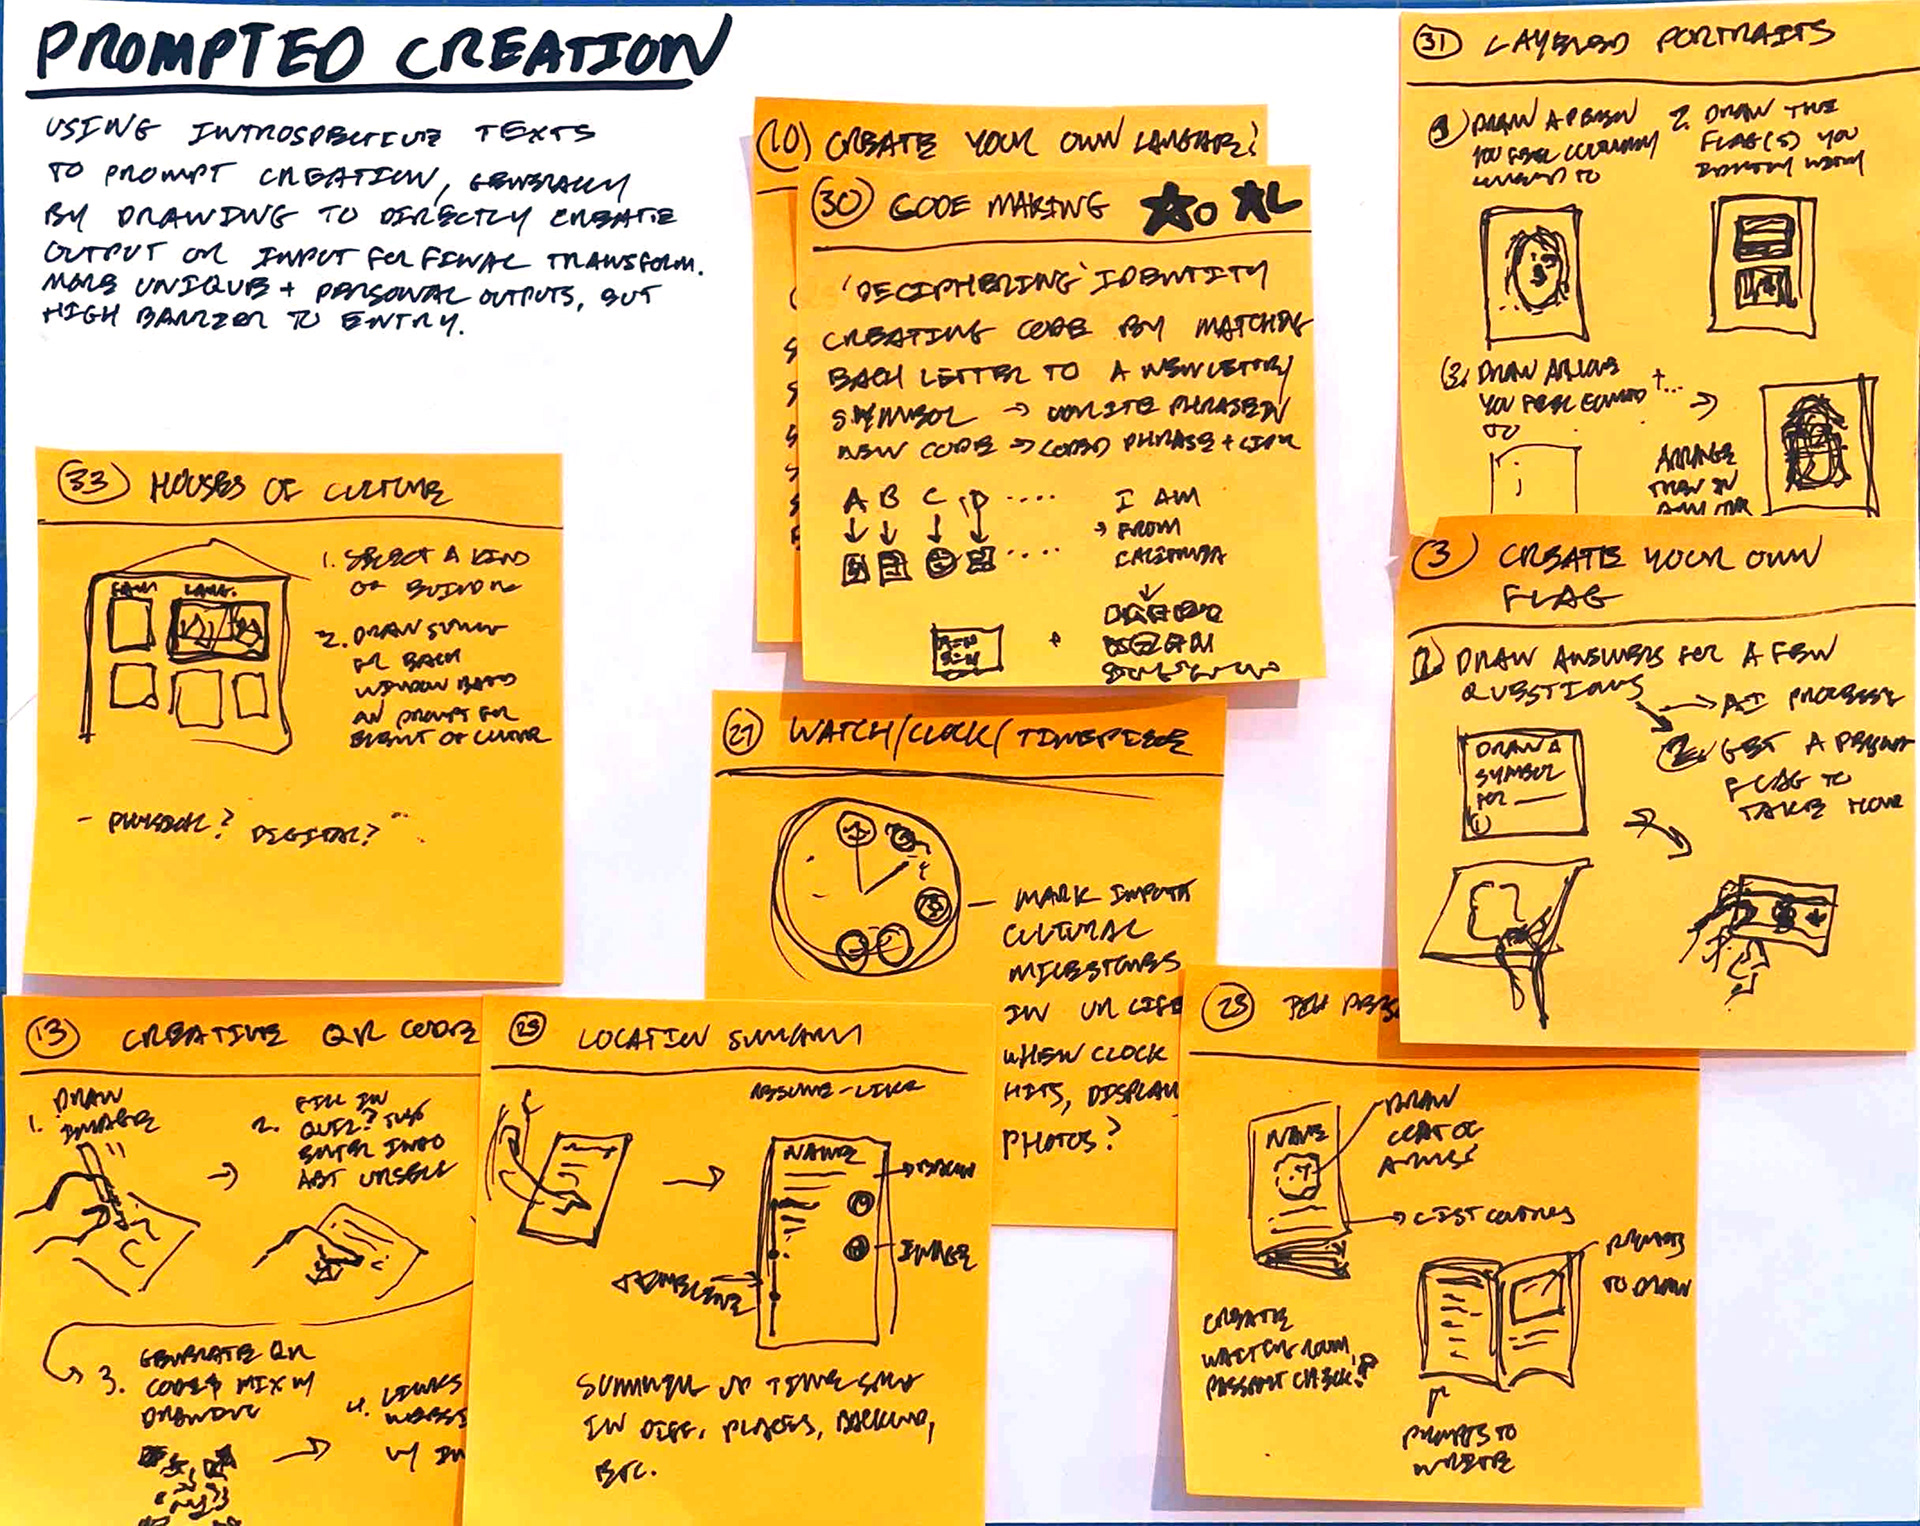 PROMPTED CREATION
USING INTROSPECTIVE TEXTS
TO PROMPT CREATION, GENERALLY
BY DRAWING TO DIRECTLY CREATE
OUTPUT OR INPUT FOR FINAL TRANSFORM.
MORE UNIQUE + PERSONAL OUTPUTS, BUT
HIGH BARRIER TO ENTRY.
10 CREATE YOUR OWN
30 CODE MAKING
'DECIPHERING' IDENTITY
CREATING CODE BY MATCHING
EACH LETTER TO A NEW LETTER/
SYMBOL → WRITE PHRASE IN
NEW CODE → CODED PHRASE +
A B C D ....
I AM
→ FROM
CALIFORNIA
31 LAYERED PORTRAITS
1. DRAW A PERSON
YOU FEEL CULTURALLY
TO
2. DRAW THE
FLAG(S) YOU
IDENTIFY WITH
3. DRAW
YOU FEEL
TO
ARRANGE
THEM IN
3 CREATE YOUR OWN
FLAG
1. DRAW ANSWERS FOR A FEW
QUESTIONS
→ AI PROCESS
2. GET A
FLAG TO
TAKE HOME
DRAW A
SYMBOL
FOR
33 HOUSES OF CULTURE
1. SELECT A KIND
OF BUILDING
2. DRAW
FOR EACH
WINDOW BASED
ON PROMPT FOR
ELEMENT OF CULTURE
LANG.
- PHYSICAL? DIGITAL?
27 WATCH/CLOCK/TIMEPIECE
MARK IMPORTANT
CULTURAL
MILESTONES
IN UR LIFE
WHEN CLOCK
HITS, DISPLAY
PHOTOS?
13 CREATIVE QR CODE
1. DRAW
IMAGE
2. FILL IN
QUIZ? JUST
ENTER INFO
ABT URSELF
3. GENERATE QR
CODE & MIX W/
DRAWING
4. LINKS
W/
LOCATION SUMMARY
RESUME-LIKE
NAME
DRAW
IMAGE
TIMELINE
SUMMARY OF TIME SPENT
IN DIFF. PLACES, BACKGROUND,
ETC.
NAME
DRAW
COAT OF
ARMS?
LIST COUNTRIES
PROMPTS
TO DRAW
CREATE
WAITING ROOM
PASSPORT CHECK?
PROMPTS TO
WRITE